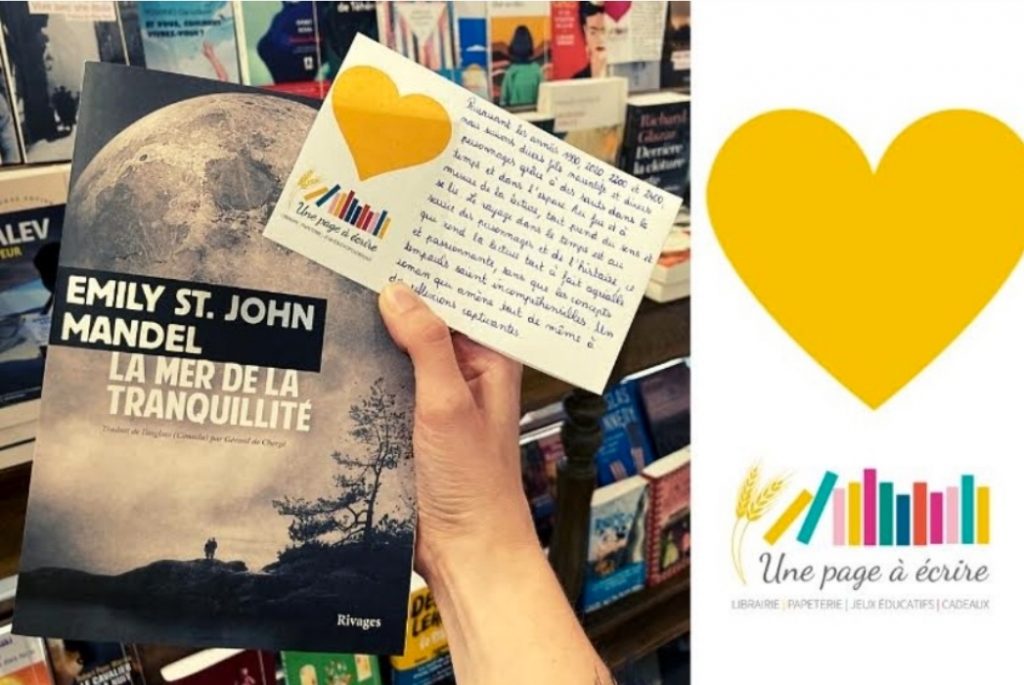 ET VOUS, COMMENT
VIVEZ-VOUS ?
de Téhéran
ALEV
EMILY ST. JOHN
MANDEL
LA MER DE LA
TRANQUILLITÉ
Traduit de l'anglais (Canada) par Gérard de Chergé
Rivages
Une page à écrire
Parcourant les années 1990, 2020, 2200 et 2400,
nous suivons divers fils narratifs et divers
personnages grâce à des sauts dans le
temps et dans l'espace. Au fur et à
mesure de la lecture, tout prend du sens et
se lie. Le voyage dans le temps est au
service des personnages et de l'histoire, ce
qui rend la lecture tout à fait agréable
et passionnante, sans que les concepts
temporels soient incompréhensibles. Un
roman qui amène tout de même à
des réflexions captivantes.
Richard
Glazar
Derrière
la clôture
LE CAVALIER
Une page à écrire
LIBRAIRIE | PAPETERIE | JEUX ÉDUCATIFS | CADEAUX